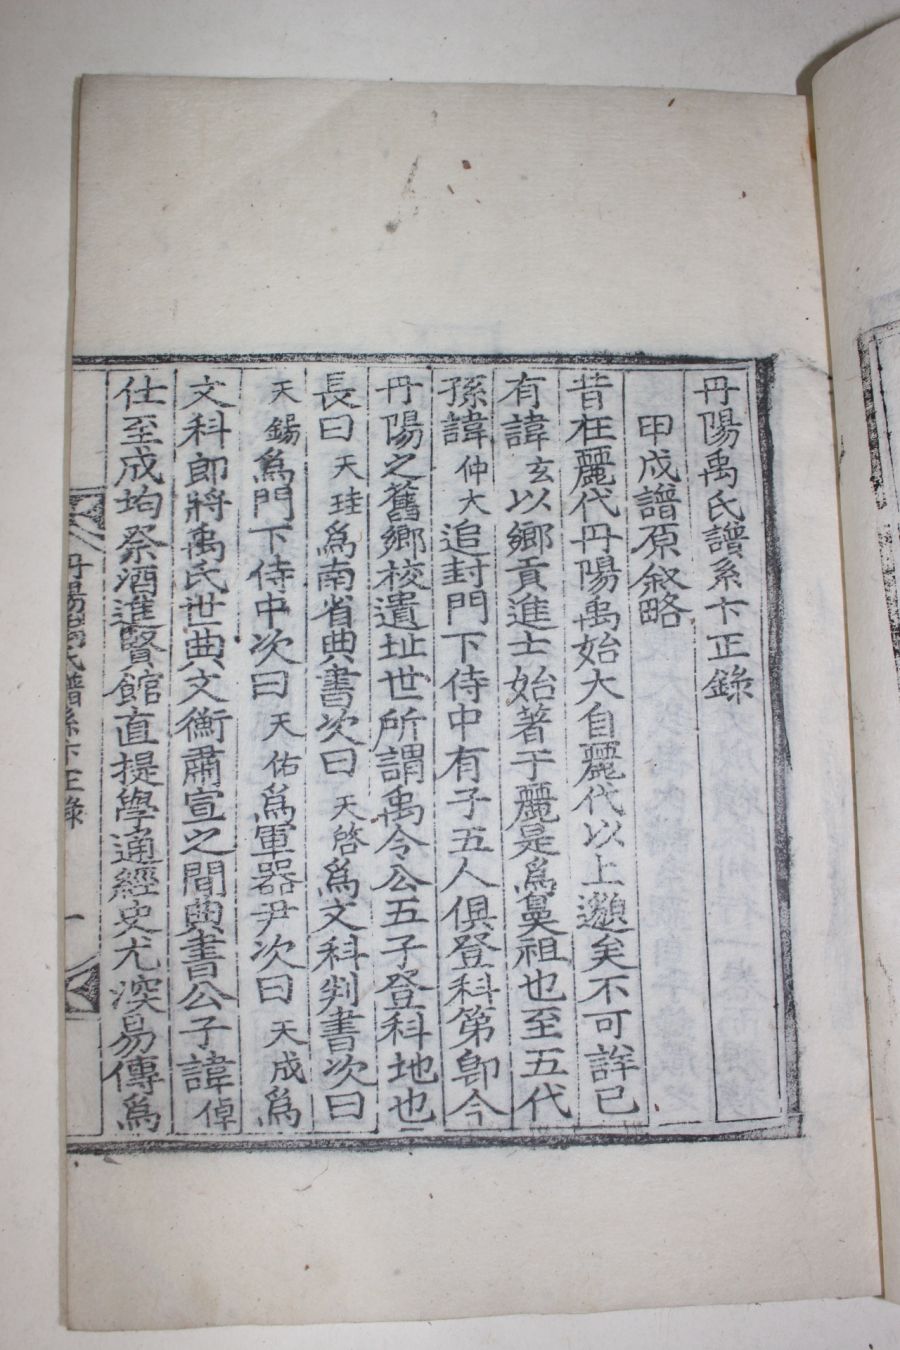 丹陽禹氏譜系卞正錄
甲戌譜原叙略
昔在麗代丹陽禹始大自麗代以上邈矣不可詳已
有諱玄以鄉貢進士始著于麗是爲鼻祖也至五代
孫諱仲大追封門下侍中有子五人俱登科第卽今
丹陽之舊鄉校遺址世所謂禹令公五子登科地也
長曰天珪爲南省典書次曰天啓爲文科判書次曰
天錫爲門下侍中次曰天佑爲軍器尹次曰天成爲
文科郎將禹氏世典文衡肅宣之間典書公子諱倬
仕至成均祭酒進賢館直提學通經史尤深易傳爲
丹陽禹氏譜系卞正錄
一